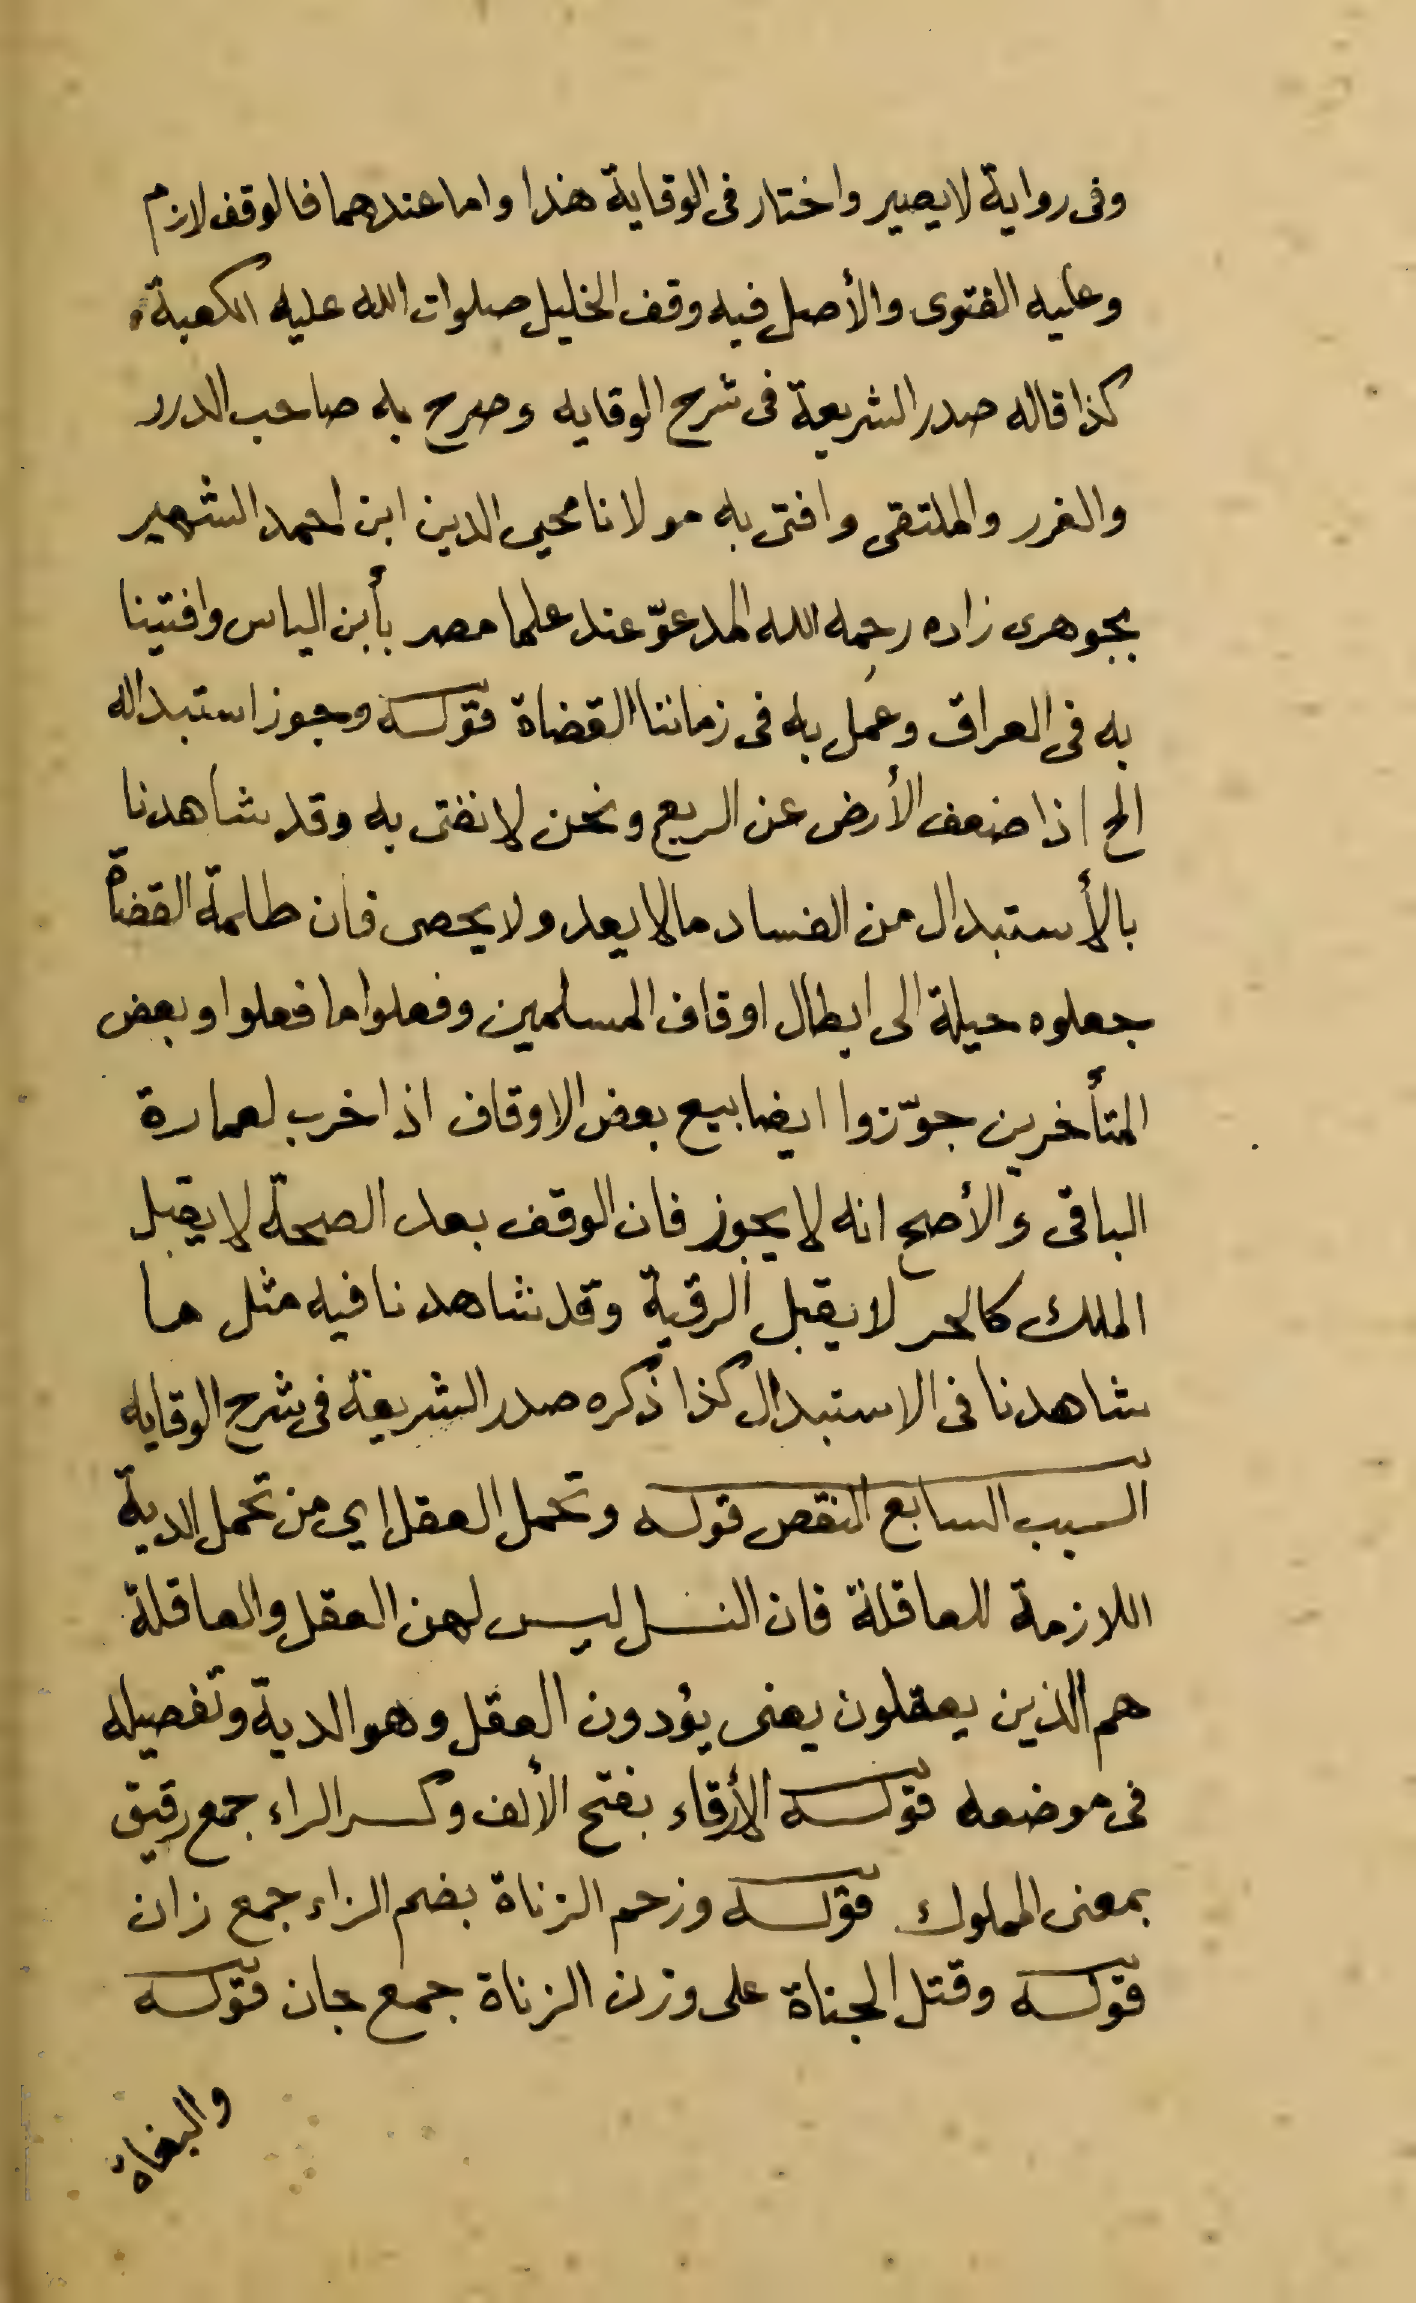 وفى رواية لا يصير واختار فى الوقاية هذا واما عندهما فالوقف لازم
وعليه الفتوى والأصل فيه وقف الخليل صلوات الله عليه الكعبة
كذا قاله صدر الشريعة فى شرح الوقايه وصرح به صاحب الدرر
والغرر والملتقى وافتى به مولانا محيى الدين ابن احمد الشهير
بجوهرى زاده رحمه الله المدعوّ عند علما مصر بأبن الياس وافتينا
به فى العراق وعمل به فى زماننا القضاة قوله وجوز استبداله
الخ اذا ضعف الأرض عن الريع ونحن لا نفتى به وقد شاهدنا
بالأستبدال من الفساد مالا يعد ولا يحصى فان ظلمة القضاة
جعلوه حيلة الى ابطال اوقاف المسلمين وفعلوا ما فعلوا وبعض
المتأخرين جوّزوا ايضا بيع بعض الاوقاف اذا خرب لعمارة
الباقى والأصح انه لا يجوز فان الوقف بعد الصحة لا يقبل
الملك كالحر لا يقبل الرقية وقد شاهدنا فيه مثل ما
شاهدنا فى الاستبدال كذا ذكره صدر الشريعة فى شرح الوقايه
السبب السابع النقص قوله وتحمل العقل اي من تحمل الدية
اللازمة للعاقلة فان النسا ليس لهن العقل والعاقلة
هم الذين يعقلون يعنى يؤدون العقل وهو الدية وتفصيله
فى موضعه قوله الأرقاء بفتح الألف وكسر الراء جمع رقيق
بمعنى المملوك قوله ورجم الزناة بضم الزاء جمع زان
قوله وقتل الجناة على وزن الزناة جمع جان قوله
والبغاة